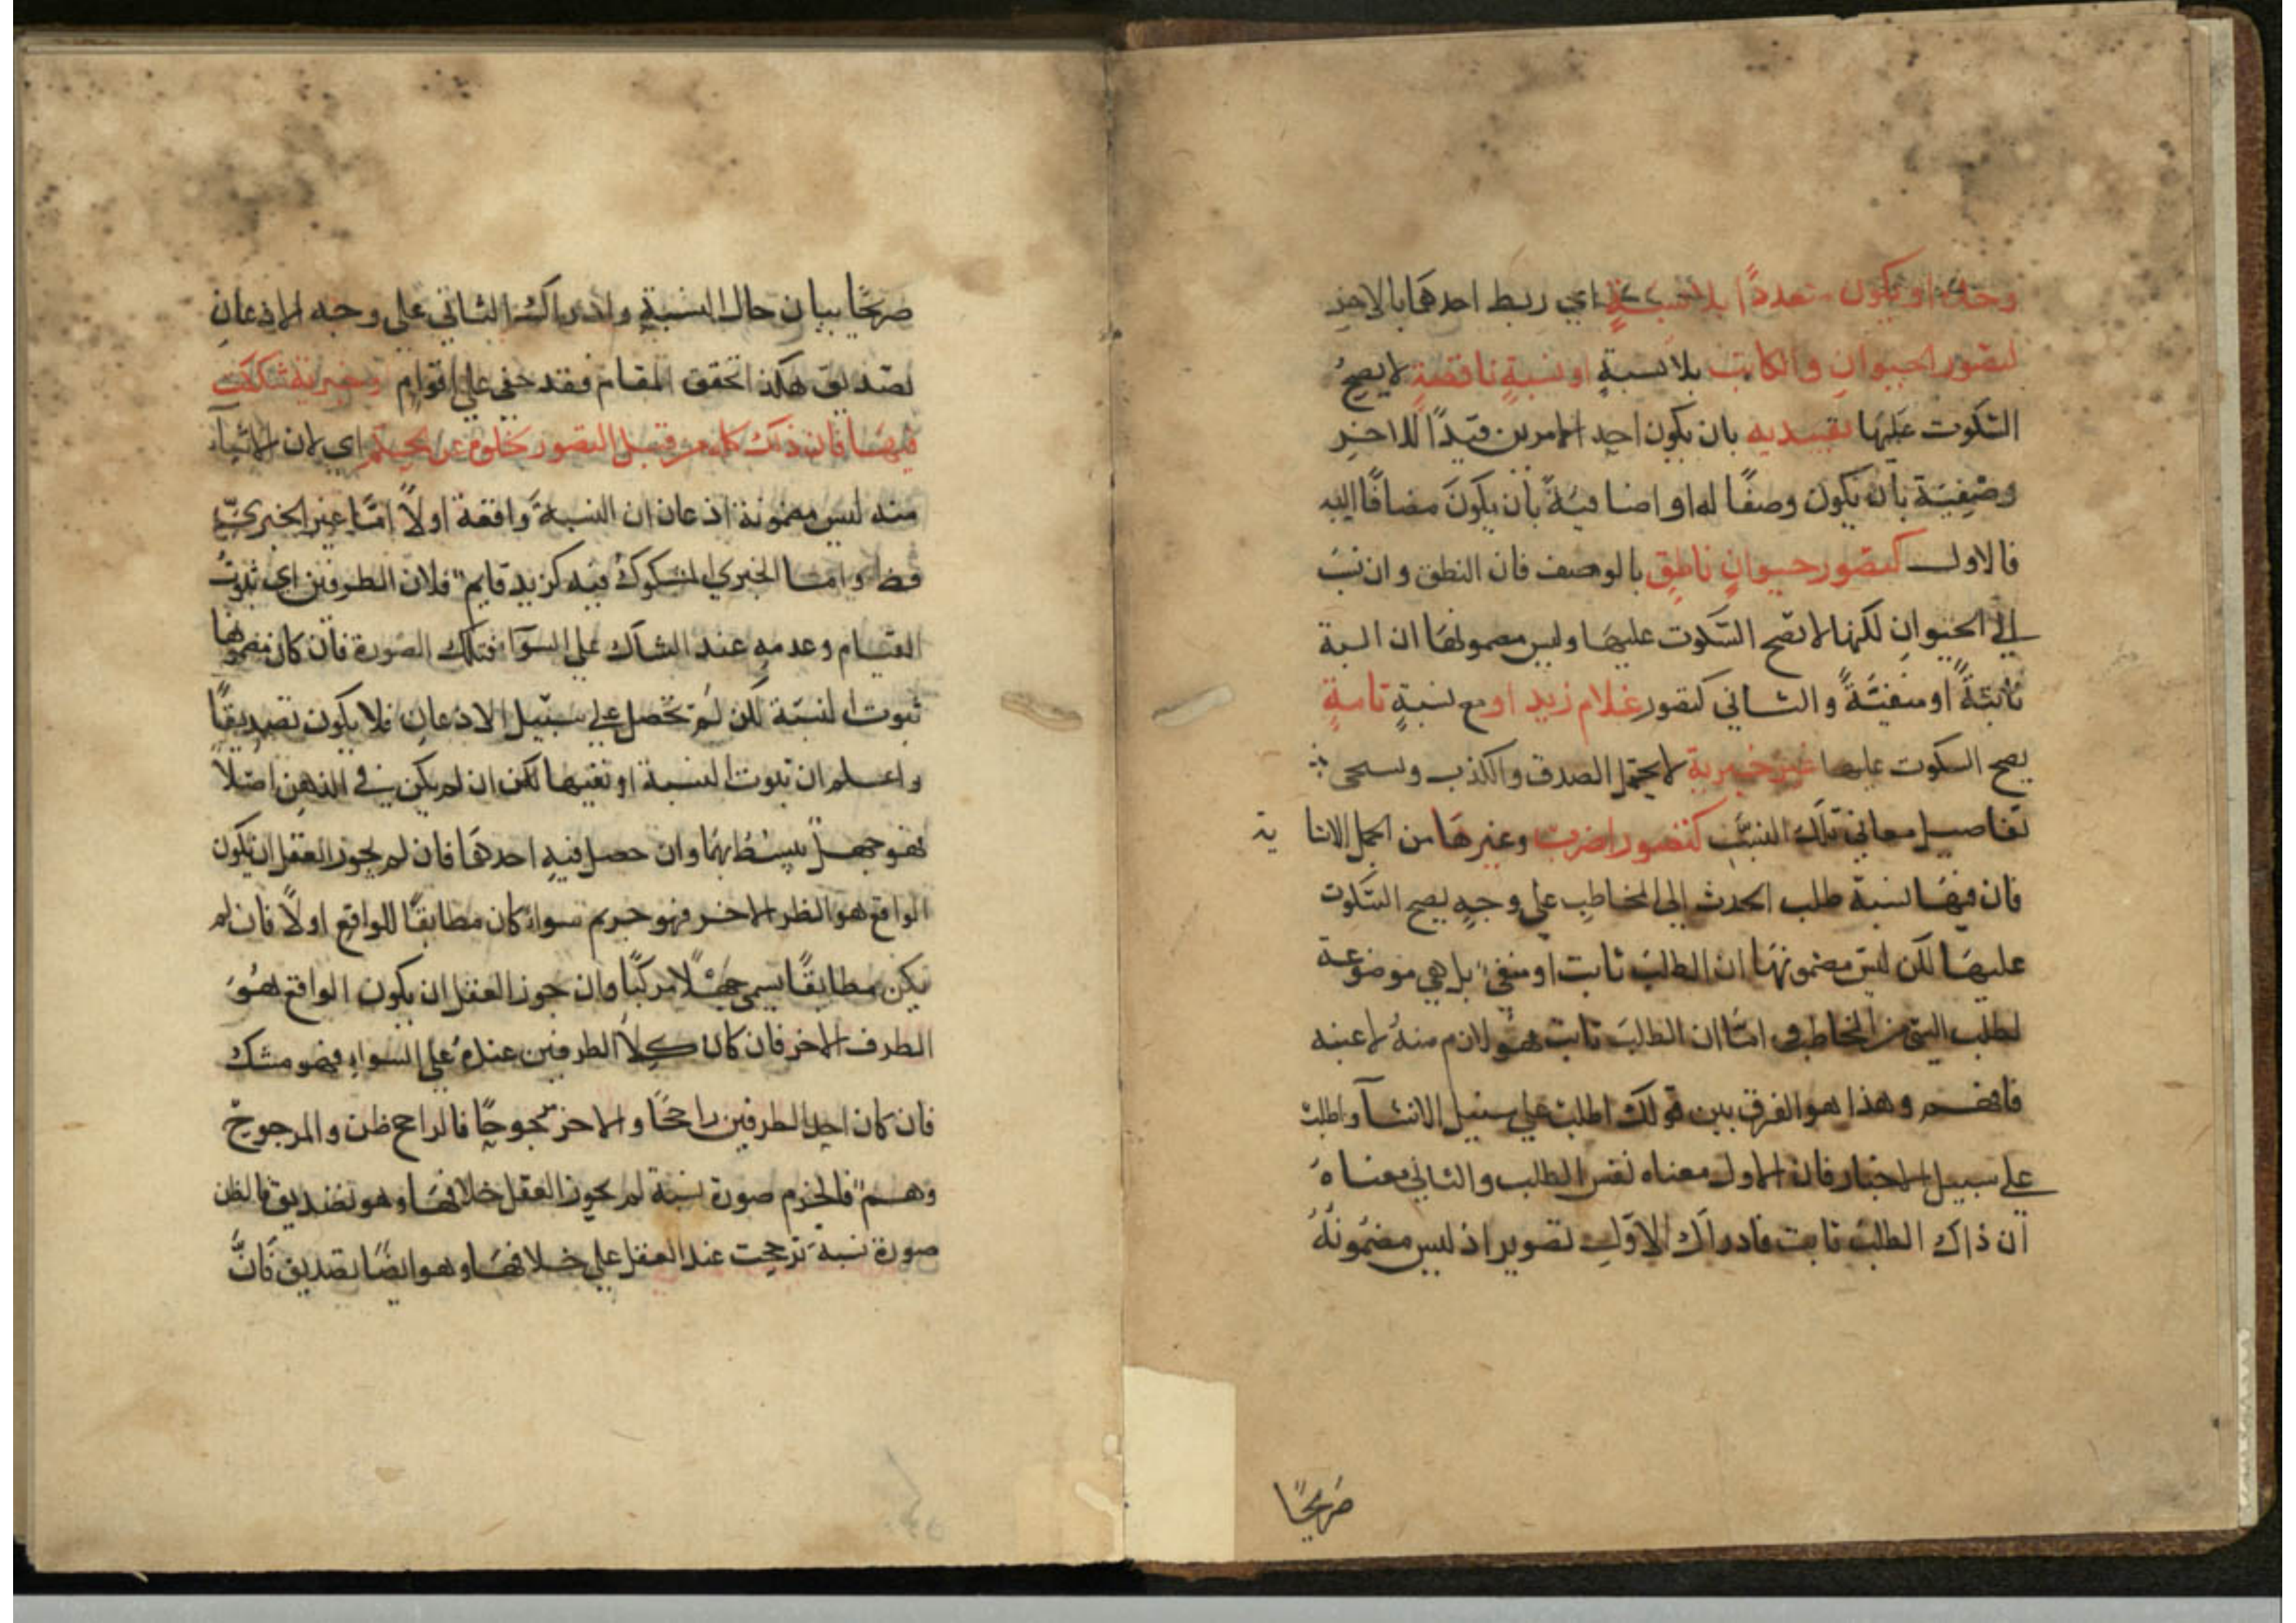 وحده او يكون متعددًا بلا نسبةٍ اي ربط احدهما بالاخر
لتصور الحيوان والكاتب بلا نسبةٍ او نسبةٍ ناقصةٍ لا يصحُ
السكوت عليها تقييديه بان يكون احد الامرين قيدًا للاخر
وصفية بان يكون وصفًا له او اضافيةً بأن يكونَ مضافًا اليه
فالاول كتصور حيوانٍ ناطقٍ بالوصف فان النطق وان نسب
الي الحيوانِ لكنها لا تصح السكوت عليها وليس مضمونها ان النسبة
ثابتةً او منفيَّةً والثاني كتصور غلام زيد او مع نسبةٍ تامةٍ
يصح السكوت عليها غير خبرية لا يحتمل الصدق والكذب
تفاصيل معاني تلك النسب كتصور اضرب وغيرها من الجمل الانشا ية
فان فيهَا نسبة طلب الحدث الى المخاطب على وجهٍ يصح السكوت
عليهَا لكن ليس مضمونهَا ان الطلبَ ثابت او منفى بل هي موضوعة
لطلب الشئ من المخاطب امّا ان الطلبَ ثابت فهو لازم منهُ لا عينه
فافهم وهذا هو الفرق بين قولك اطلب على سبيل الانشآ واطلبُ
علي سبيل الاخبار فان الاول معناه نفس الطلب والثاني معناهَ
ان ذاك الطلبَ ثابت فادراك الاوّلِ تصوير اذ ليس مضمُونهُ
صَريحًا
صريحًا بيان حال النسبةِ وادراك الثاني على وجه الاذعانِ
تصديق هكذا تحقق المقام فقد خفي علي اقوامٍ وخبرية شككت
فيهَا فان ذلك كله من قبيل التصور لخلوه عن الحكم اي لان الاشيآ
منه ليس مضمونة اذعان ان النسبةَ واقعة اولاً امّا غير الخبري
فظ وامّا الخبري المشكوك فيه كزيد قايم فلان الطرفين اي ثبوتُ
القيام وعدمهِ عند الشاك على السوآ فتلك الصورة فان كان مضمونها
ثبوت النسبَة لكن لم تحصل على سبيل الاذعانِ فلا يكون تصديقًا
واعلم ان ثبوت النسبة او نفيها لكن ان لم يكن في الذهن اصلاً
فهو جهل بسيط بهَا وان حصل فيهِ احدهَا فان لم يجوز العقل ان يكون
الواقع هو الطر الاخر فهو جزم سوآ كان مطابقًا للواقع اولاً فان لم
يكن مطابقًا يسمى جهلاً مركبًا وان جوز العقل ان يكون الواقع هُوَ
الطرف الاخر فان كان كلا الطرفين عندهُ على السواءِ فهو مشك
فان كان احد الطرفين راجحًا والاخر مرجوحًا فالراجح ظن والمرجوح
وهم فالجزم صورة نسبة لم يجوز العقل خلافهَا وهو تصديق فالظن
صورة نسبَة ترجحت عند العقل على خلافهَا وهو ايضًا تصديق فانَّ